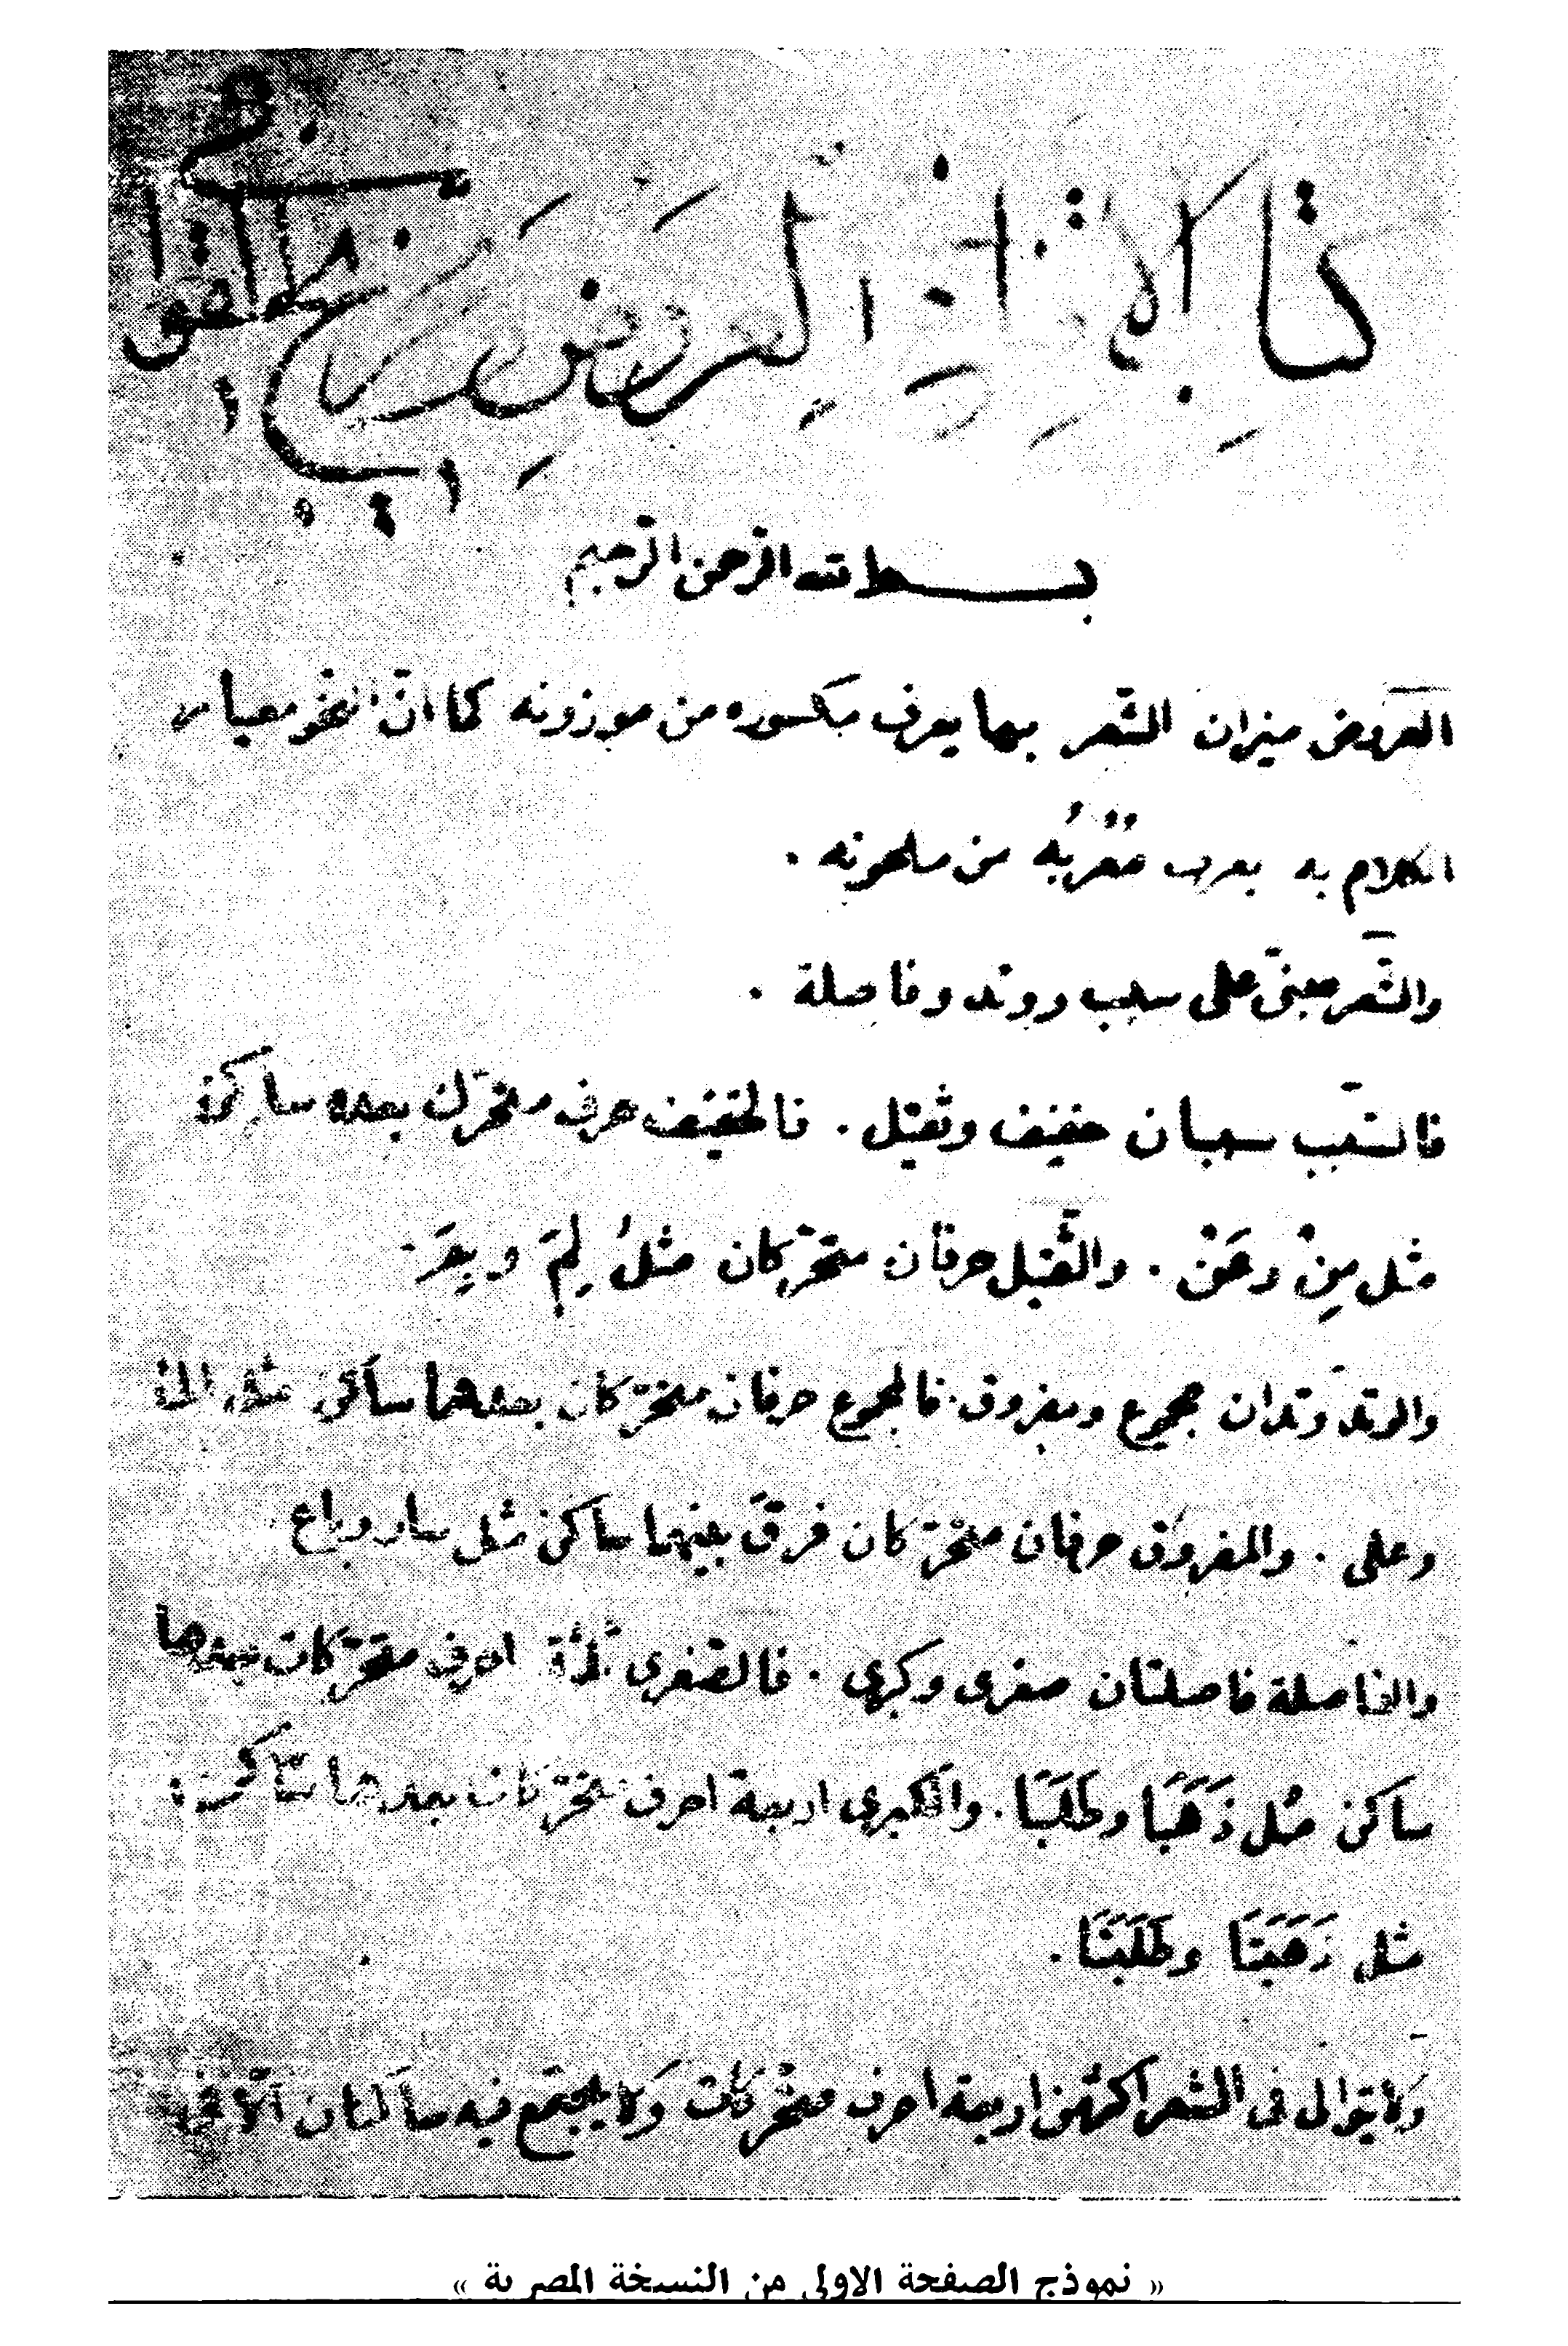 كتاب الاقناع في العروض وتخريج القوافي
بسم الله الرحمن الرحيم
العروض ميزان الشعر بها يعرف مكسوره من موزونه كما انّ النحو معيار
الكلام به يعرف مُعْرَبُه من ملحونه .
والشّعر مبنىّ على سبب ووتد وفاصلة .
فالسّبب سببان خفيف وثقيل . فالخفيف حرف متحرّك بعده ساكن
مثل مِنْ وعَنْ . والثّقيل حرفان متحرّكان مثلُ لِمَ وبِمَ .
والوتد وتدان مجموع ومفروق . فالمجموع حرفان متحرّكان بعدهما ساكن مثل
وعلى . والمفروق حرفان متحرّكان فرق بينهما ساكن مثل سار وباع
والفاصلة فاصلتان صغرى وكبرى . فالصّغرى ثلاثة احرف متحرّكات بعدها
ساكن مثل ذَهَبَا وطَلَبَا . والكبرى اربعة احرف متحرّكات بعدها ساكن
مثل ذَهَبَتَا وطَلَبَتَا .
ولا يتوالى فى الشعر اكثر من اربعة احرف متحرّكات ولا يجتمع فيه ساكنان الّا فى
« نموذج الصفحة الاولى من النسخة المصرية »